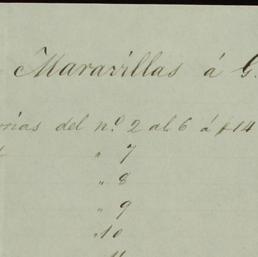 Maravillas á G.
rias del nº 2 al 6 á $14
" 7
" 8
" 9
" 10